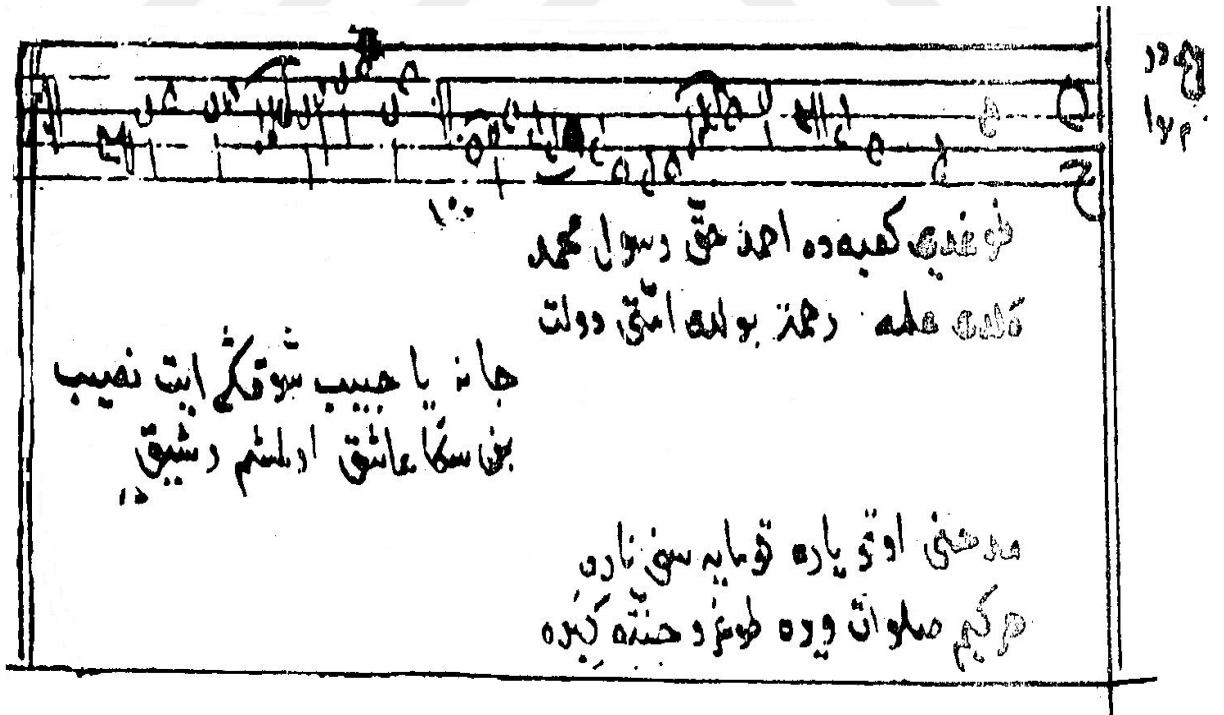 طوغدي كعبه ده احمد حقّ رسول محمد
كلدى علمه رحمت بولدى امّتى دولت
جانه يا حبيب شوقڭى ايت نصيب
بن سڭا عاشق اولمشم رشيق
مدحنى اوقو ياره قومايه سنى ناره
هركيم صلوات ويره طوغرو جنّته گيره